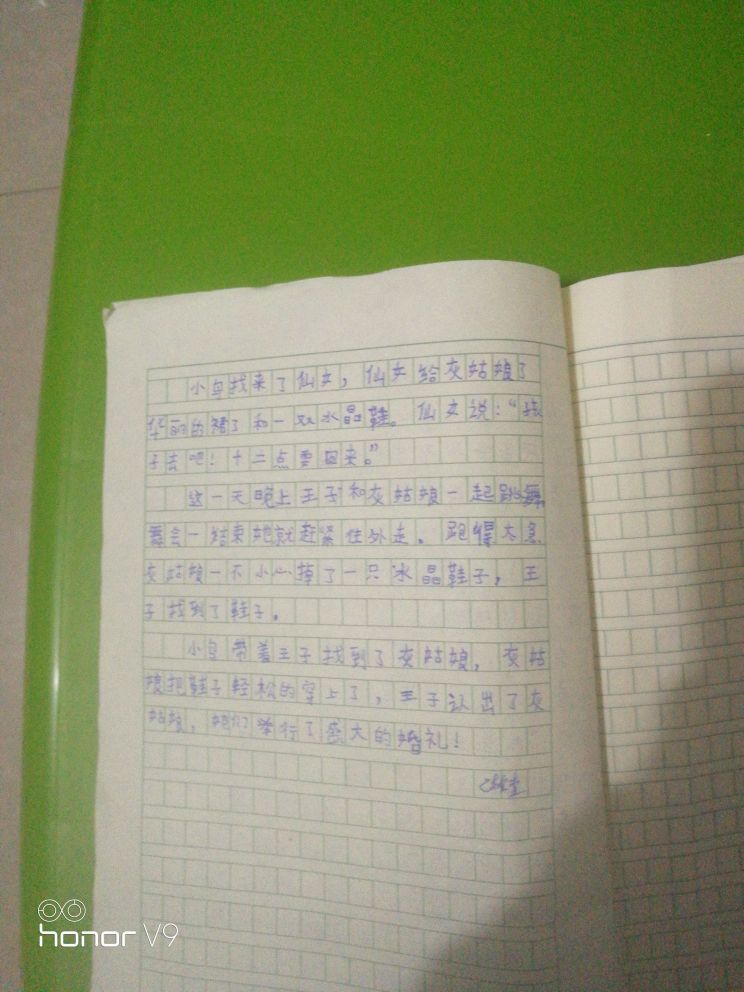 小鸟找来了仙女，仙女给灰姑娘了
华丽的裙了和一双水晶鞋。仙女说：“孩
子去吧！十二点要回来。”
这一天晚上王子和灰姑娘一起跳舞，
舞会一结束她就赶紧往外走。跑得太急
灰姑娘一不小心掉了一只水晶鞋子，王
子找到了鞋子。
小鸟带着王子找到了灰姑娘，灰姑
娘把鞋子轻松的穿上了，王子认出了灰
姑娘，她们举行了盛大的婚礼！
honor V9